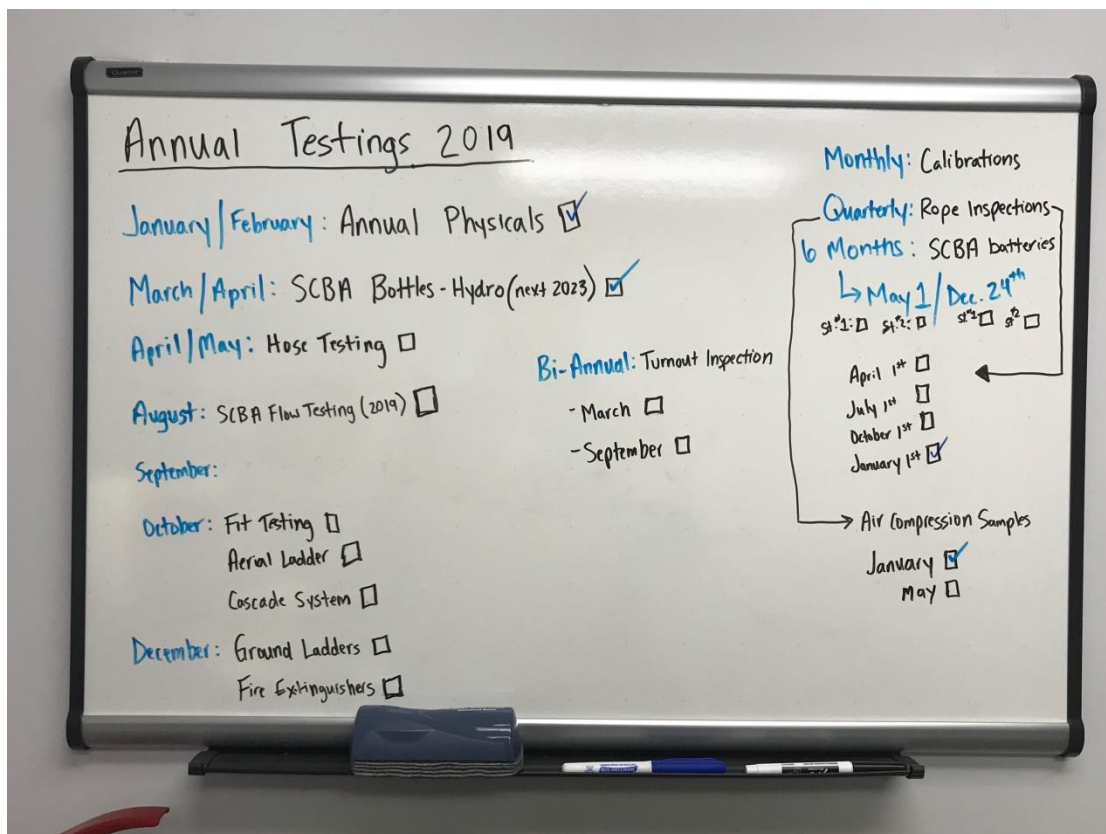 Quartet
Annual Testings 2019
January/February: Annual Physicals ☑
March/April: SCBA Bottles - Hydro (next 2023) ☑
April/May: Hose Testing ☐
August: SCBA Flow Testing (2019) ☐
September:
October: Fit Testing ☐
Aerial Ladder ☐
Cascade System ☐
December: Ground Ladders ☐
Fire Extinguishers ☐
Bi-Annual: Turnout Inspection
- March ☐
- September ☐
Monthly: Calibrations
Quarterly: Rope Inspections
6 Months: SCBA batteries
↳ May 1 / Dec. 24th
St.#1: ☐ St.#2: ☐ St#1 ☐ St#2 ☐
April 1st ☐
July 1st ☐
October 1st ☐
January 1st ☑
→ Air Compression Samples
January ☑
May ☐